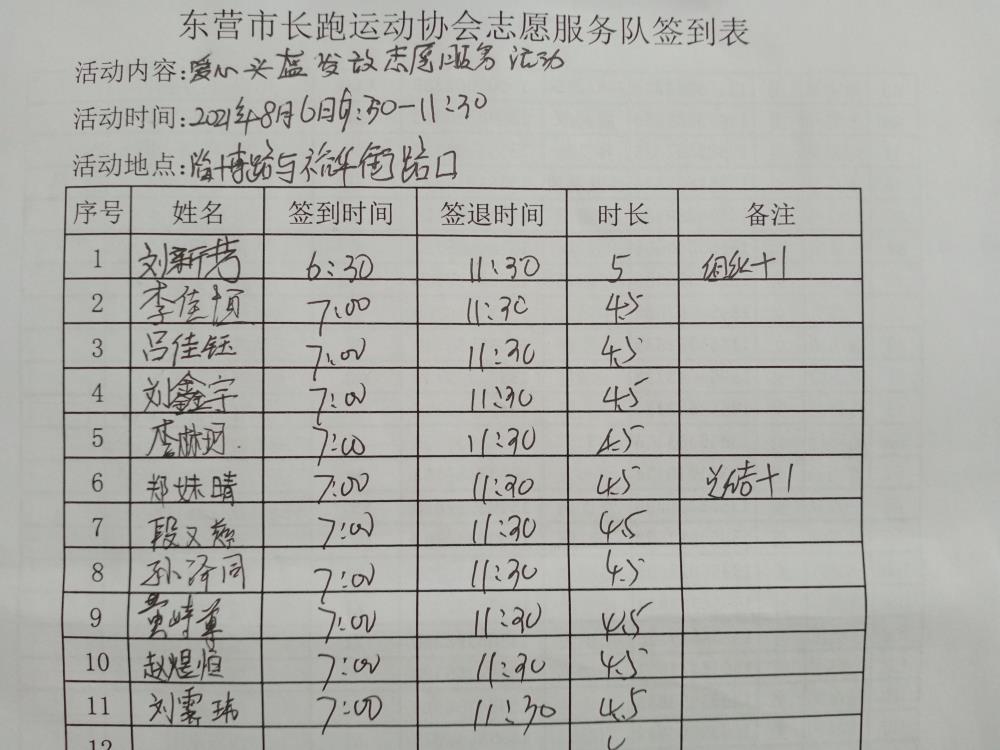 东营市长跑运动协会志愿服务队签到表
活动内容:爱心头盔发放志愿服务活动
活动时间:2021年8月6日6:30-11:30
活动地点:淄博路与裕华街路口
序号 姓名 签到时间 签退时间 时长 备注
1 刘新芳 6:30 11:30 5 组织+1
2 李佳恒 7:00 11:30 4.5
3 吕佳钰 7:00 11:30 4.5
4 刘鑫宇 7:00 11:30 4.5
5 李林珂 7:00 11:30 4.5
6 郑姝晴 7:00 11:30 4.5 总结+1
7 段又慈 7:00 11:30 4.5
8 孙泽同 7:00 11:30 4.5
9 黄时尊 7:00 11:30 4.5
10 赵煜恒 7:00 11:30 4.5
11 刘雲玮 7:00 11:30 4.5
12